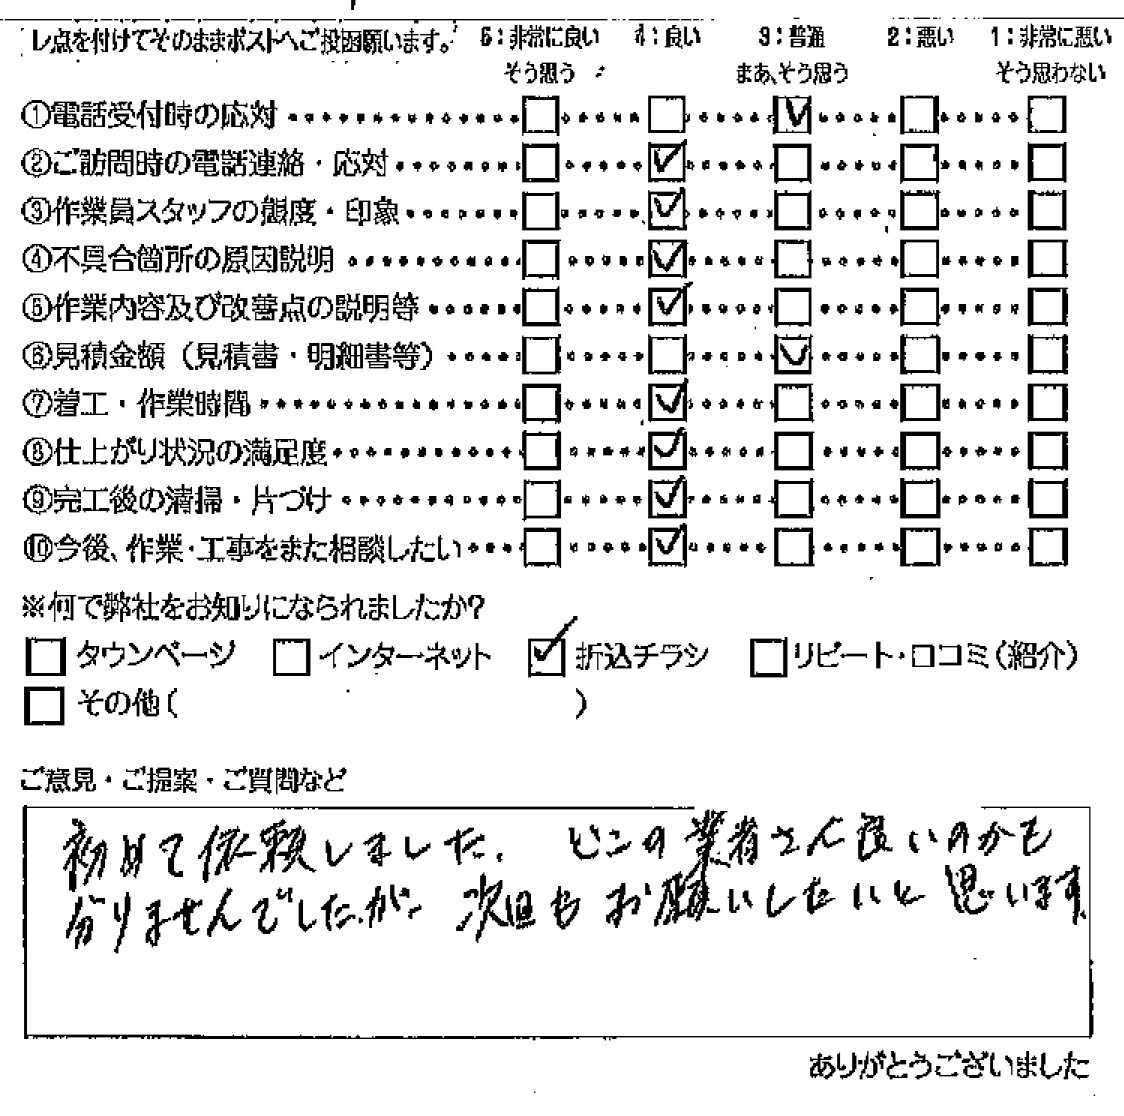 レ点を付けてそのままポストへご投函願います。 5：非常に良い 4：良い 3：普通 2：悪い 1：非常に悪い
そう思う まあ、そう思う そう思わない
①電話受付時の応対・・・・・・・・・・・・・□・・・・・□・・・・・☑・・・・・□・・・・・□
②ご訪問時の電話連絡・応対・・・・・・・・□・・・・・☑・・・・・□・・・・・□・・・・・□
③作業員スタッフの態度・印象・・・・・・・□・・・・・☑・・・・・□・・・・・□・・・・・□
④不具合箇所の原因説明・・・・・・・・・・□・・・・・☑・・・・・□・・・・・□・・・・・□
⑤作業内容及び改善点の説明等・・・・・・・□・・・・・☑・・・・・□・・・・・□・・・・・□
⑥見積金額（見積書・明細書等）・・・・・・□・・・・・□・・・・・☑・・・・・□・・・・・□
⑦着工・作業時間・・・・・・・・・・・・・□・・・・・☑・・・・・□・・・・・□・・・・・□
⑧仕上がり状況の満足度・・・・・・・・・・□・・・・・☑・・・・・□・・・・・□・・・・・□
⑨完工後の清掃・片づけ・・・・・・・・・・□・・・・・☑・・・・・□・・・・・□・・・・・□
⑩今後、作業・工事をまた相談したい・・・・□・・・・・☑・・・・・□・・・・・□・・・・・□
※何で弊社をお知りになられましたか？
□ タウンページ □ インターネット ☑ 折込チラシ □ リピート・口コミ（紹介）
□ その他（ ）
ご意見・ご提案・ご質問など
初めて依頼しました。 どこの業者さん良いのかも
分りませんでしたが、次回もお願いしたいと思います。
ありがとうございました